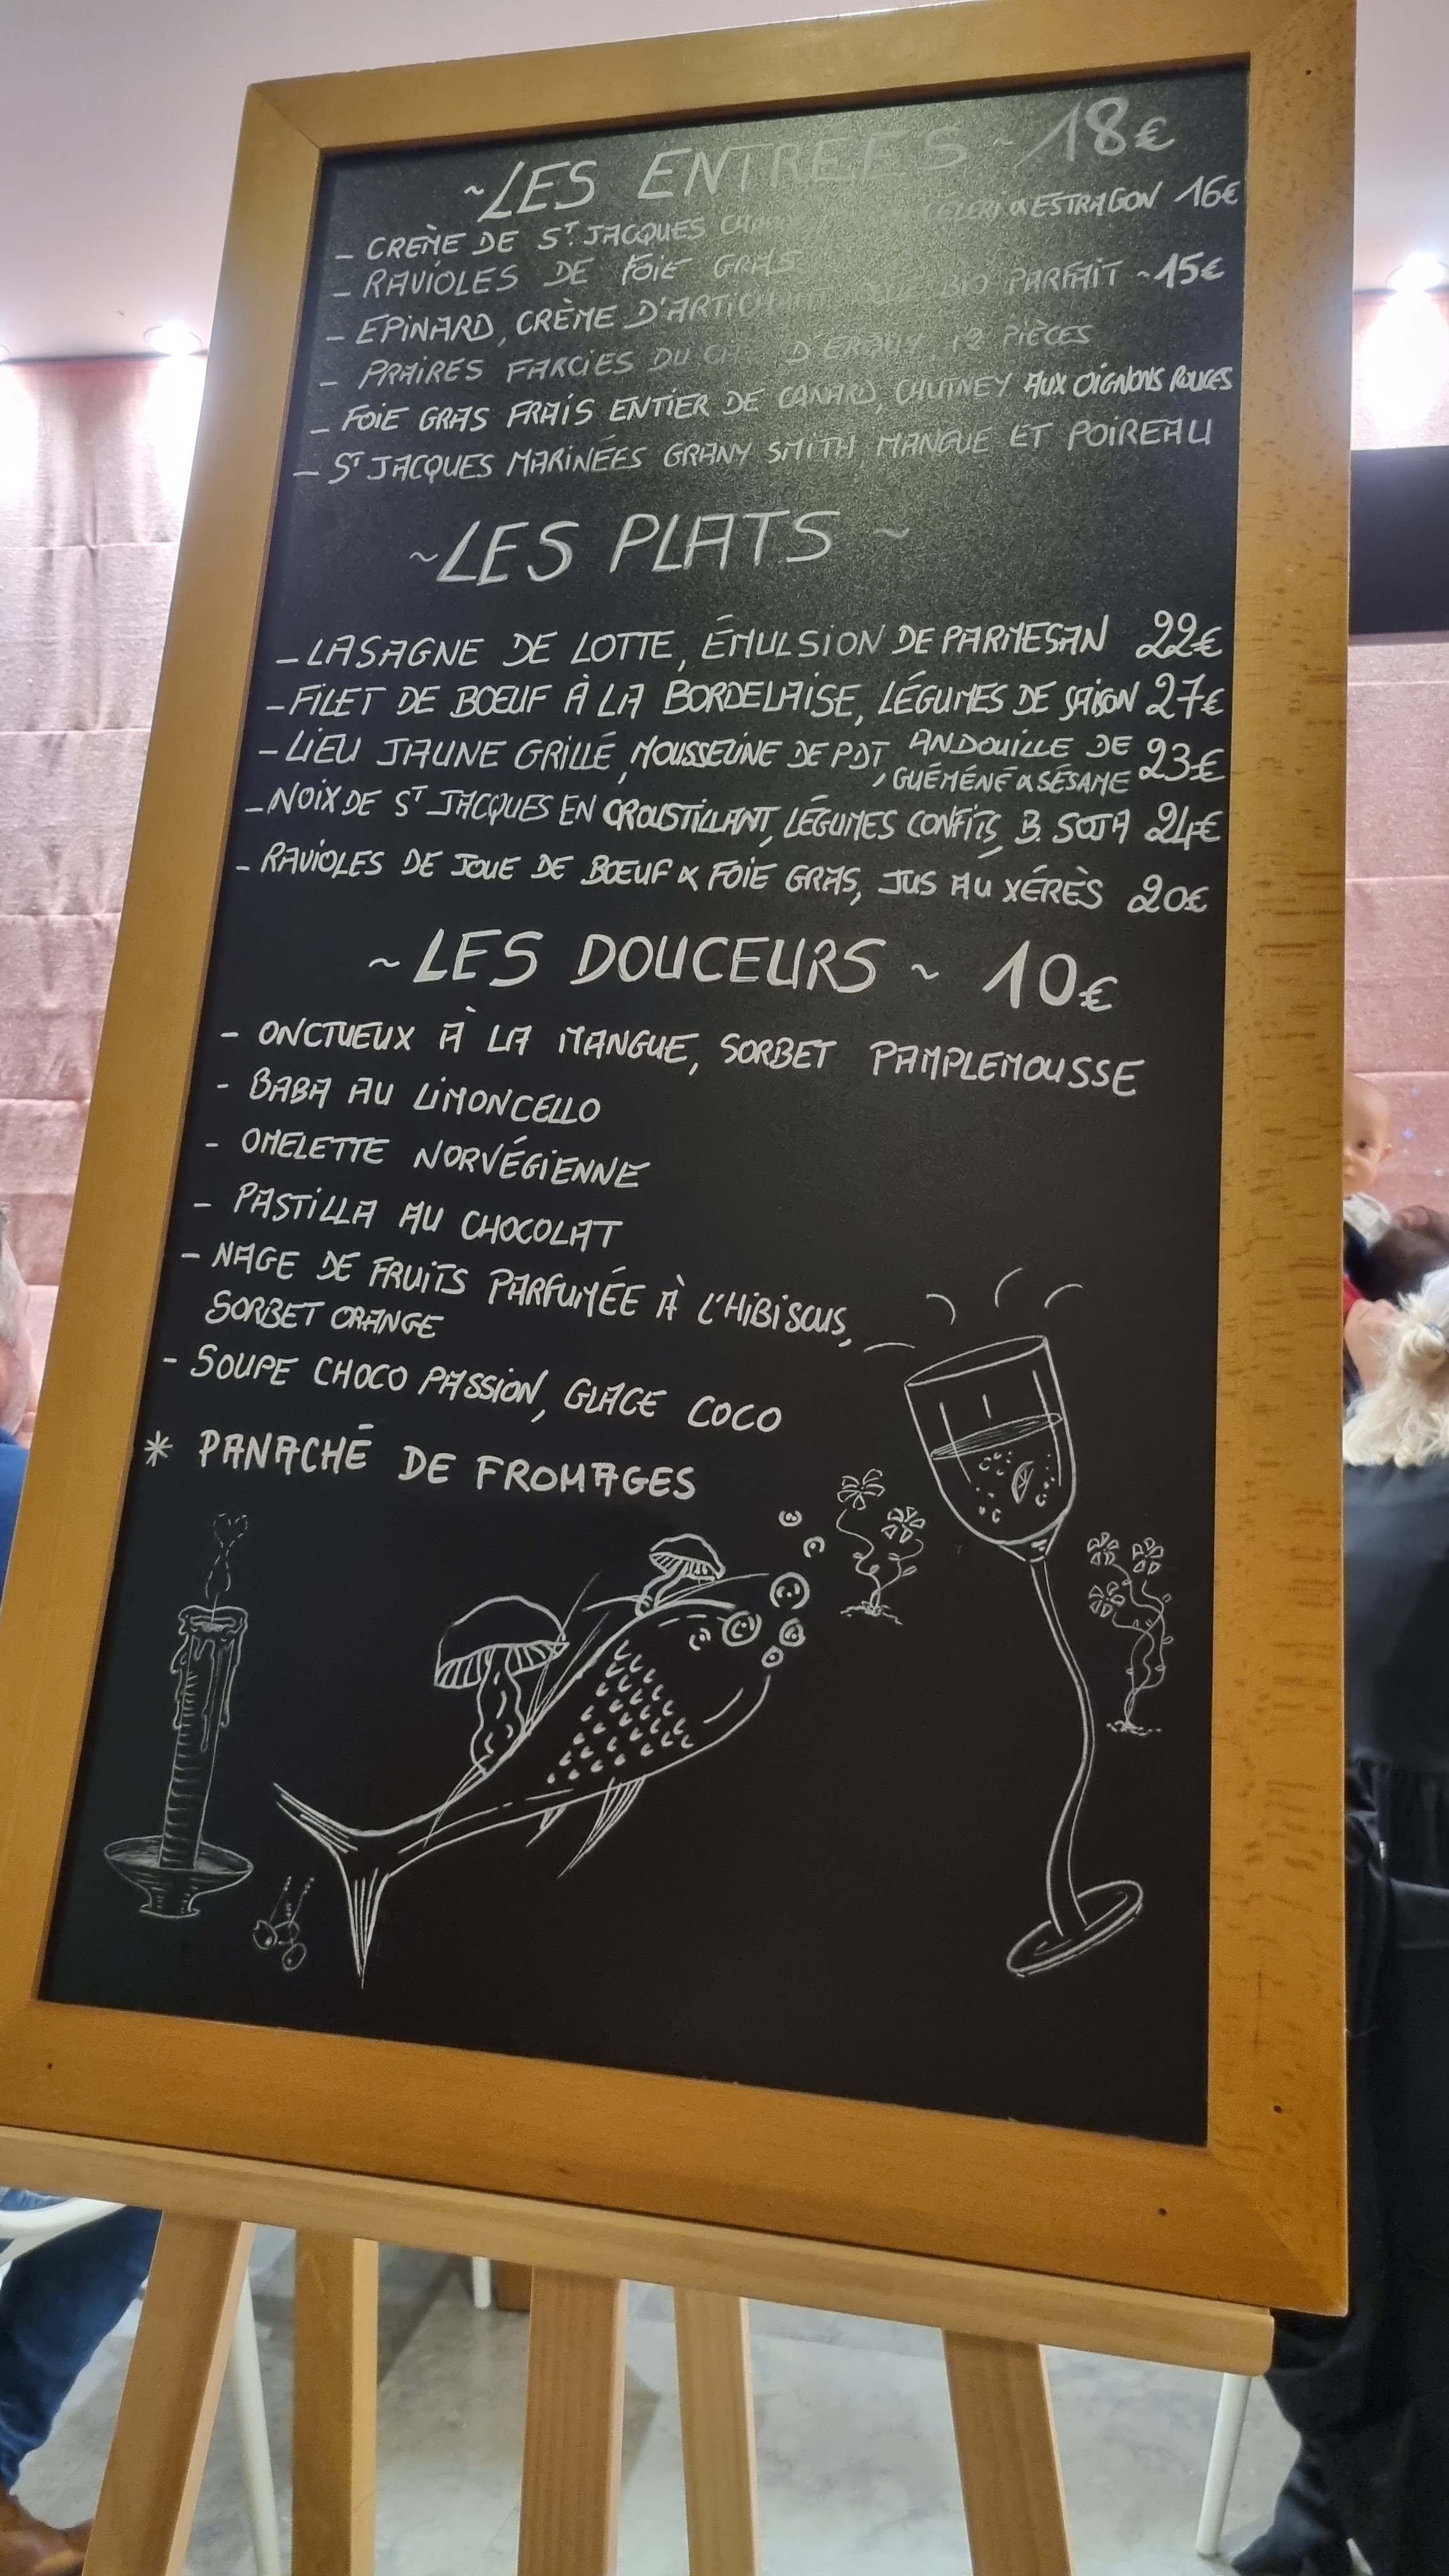 ~LES ENTRÉES ~ 18€
– CRÈME DE ST JACQUES CÉLERI & ESTRAGON 16€
– RAVIOLES DE FOIE GRAS
– EPINARD, CRÈME D'ARTICHAUT BIO PARFAIT ~ 15€
– PRAIRES FARCIES DU 12 PIÈCES
– FOIE GRAS FRAIS ENTIER DE CANARD, CHUTNEY AUX OIGNONS ROUGES
– ST JACQUES MARINÉES GRANY SMITH MANGUE ET POIREAU
~LES PLATS ~
– LASAGNE DE LOTTE, ÉMULSION DE PARMESAN 22€
– FILET DE BŒUF À LA BORDELAISE, LÉGUMES DE SAISON 27€
– LIEU JAUNE GRILLÉ, MOUSSELINE DE PDT, ANDOUILLE DE 23€
GUÉMÉNÉ & SÉSAME
– NOIX DE ST JACQUES EN CROUSTILLANT, LÉGUMES CONFITS, B. SOJA 24€
– RAVIOLES DE JOUE DE BŒUF & FOIE GRAS, JUS AU XÉRÈS 20€
~ LES DOUCEURS ~ 10€
- ONCTUEUX À LA MANGUE, SORBET PAMPLEMOUSSE
- BABA AU LIMONCELLO
- OMELETTE NORVÉGIENNE
- PASTILLA AU CHOCOLAT
- NAGE DE FRUITS PARFUMÉE À L'HIBISCUS,
SORBET ORANGE
- SOUPE CHOCO PASSION, GLACE COCO
* PANACHÉ DE FROMAGES